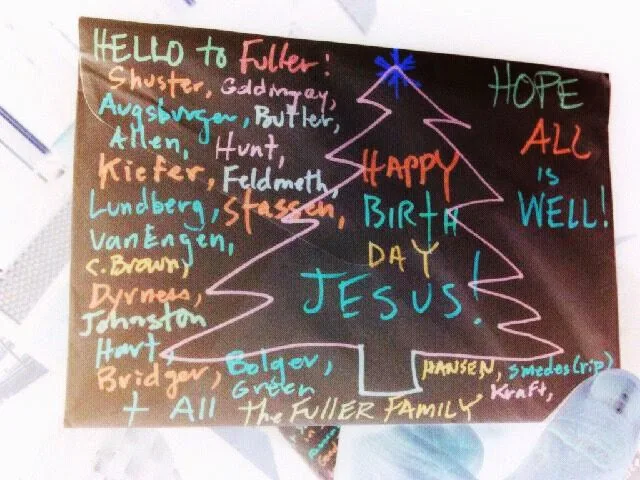 HELLO to Fuller!
Shuster, Goldingay,
Augsburger, Butler,
Allen, Hunt,
Kiefer, Feldmeth,
Lundberg, Stassen,
VanEngen,
C. Brown,
Dyrness,
Johnston
Hart,
Bridger, Bolger,
Green
+ All The FULLER FAMILY
HAPPY
BIRTH
DAY
JESUS!
HOPE
ALL
is
WELL!
HANSEN, Smedes (rip)
Kraft,